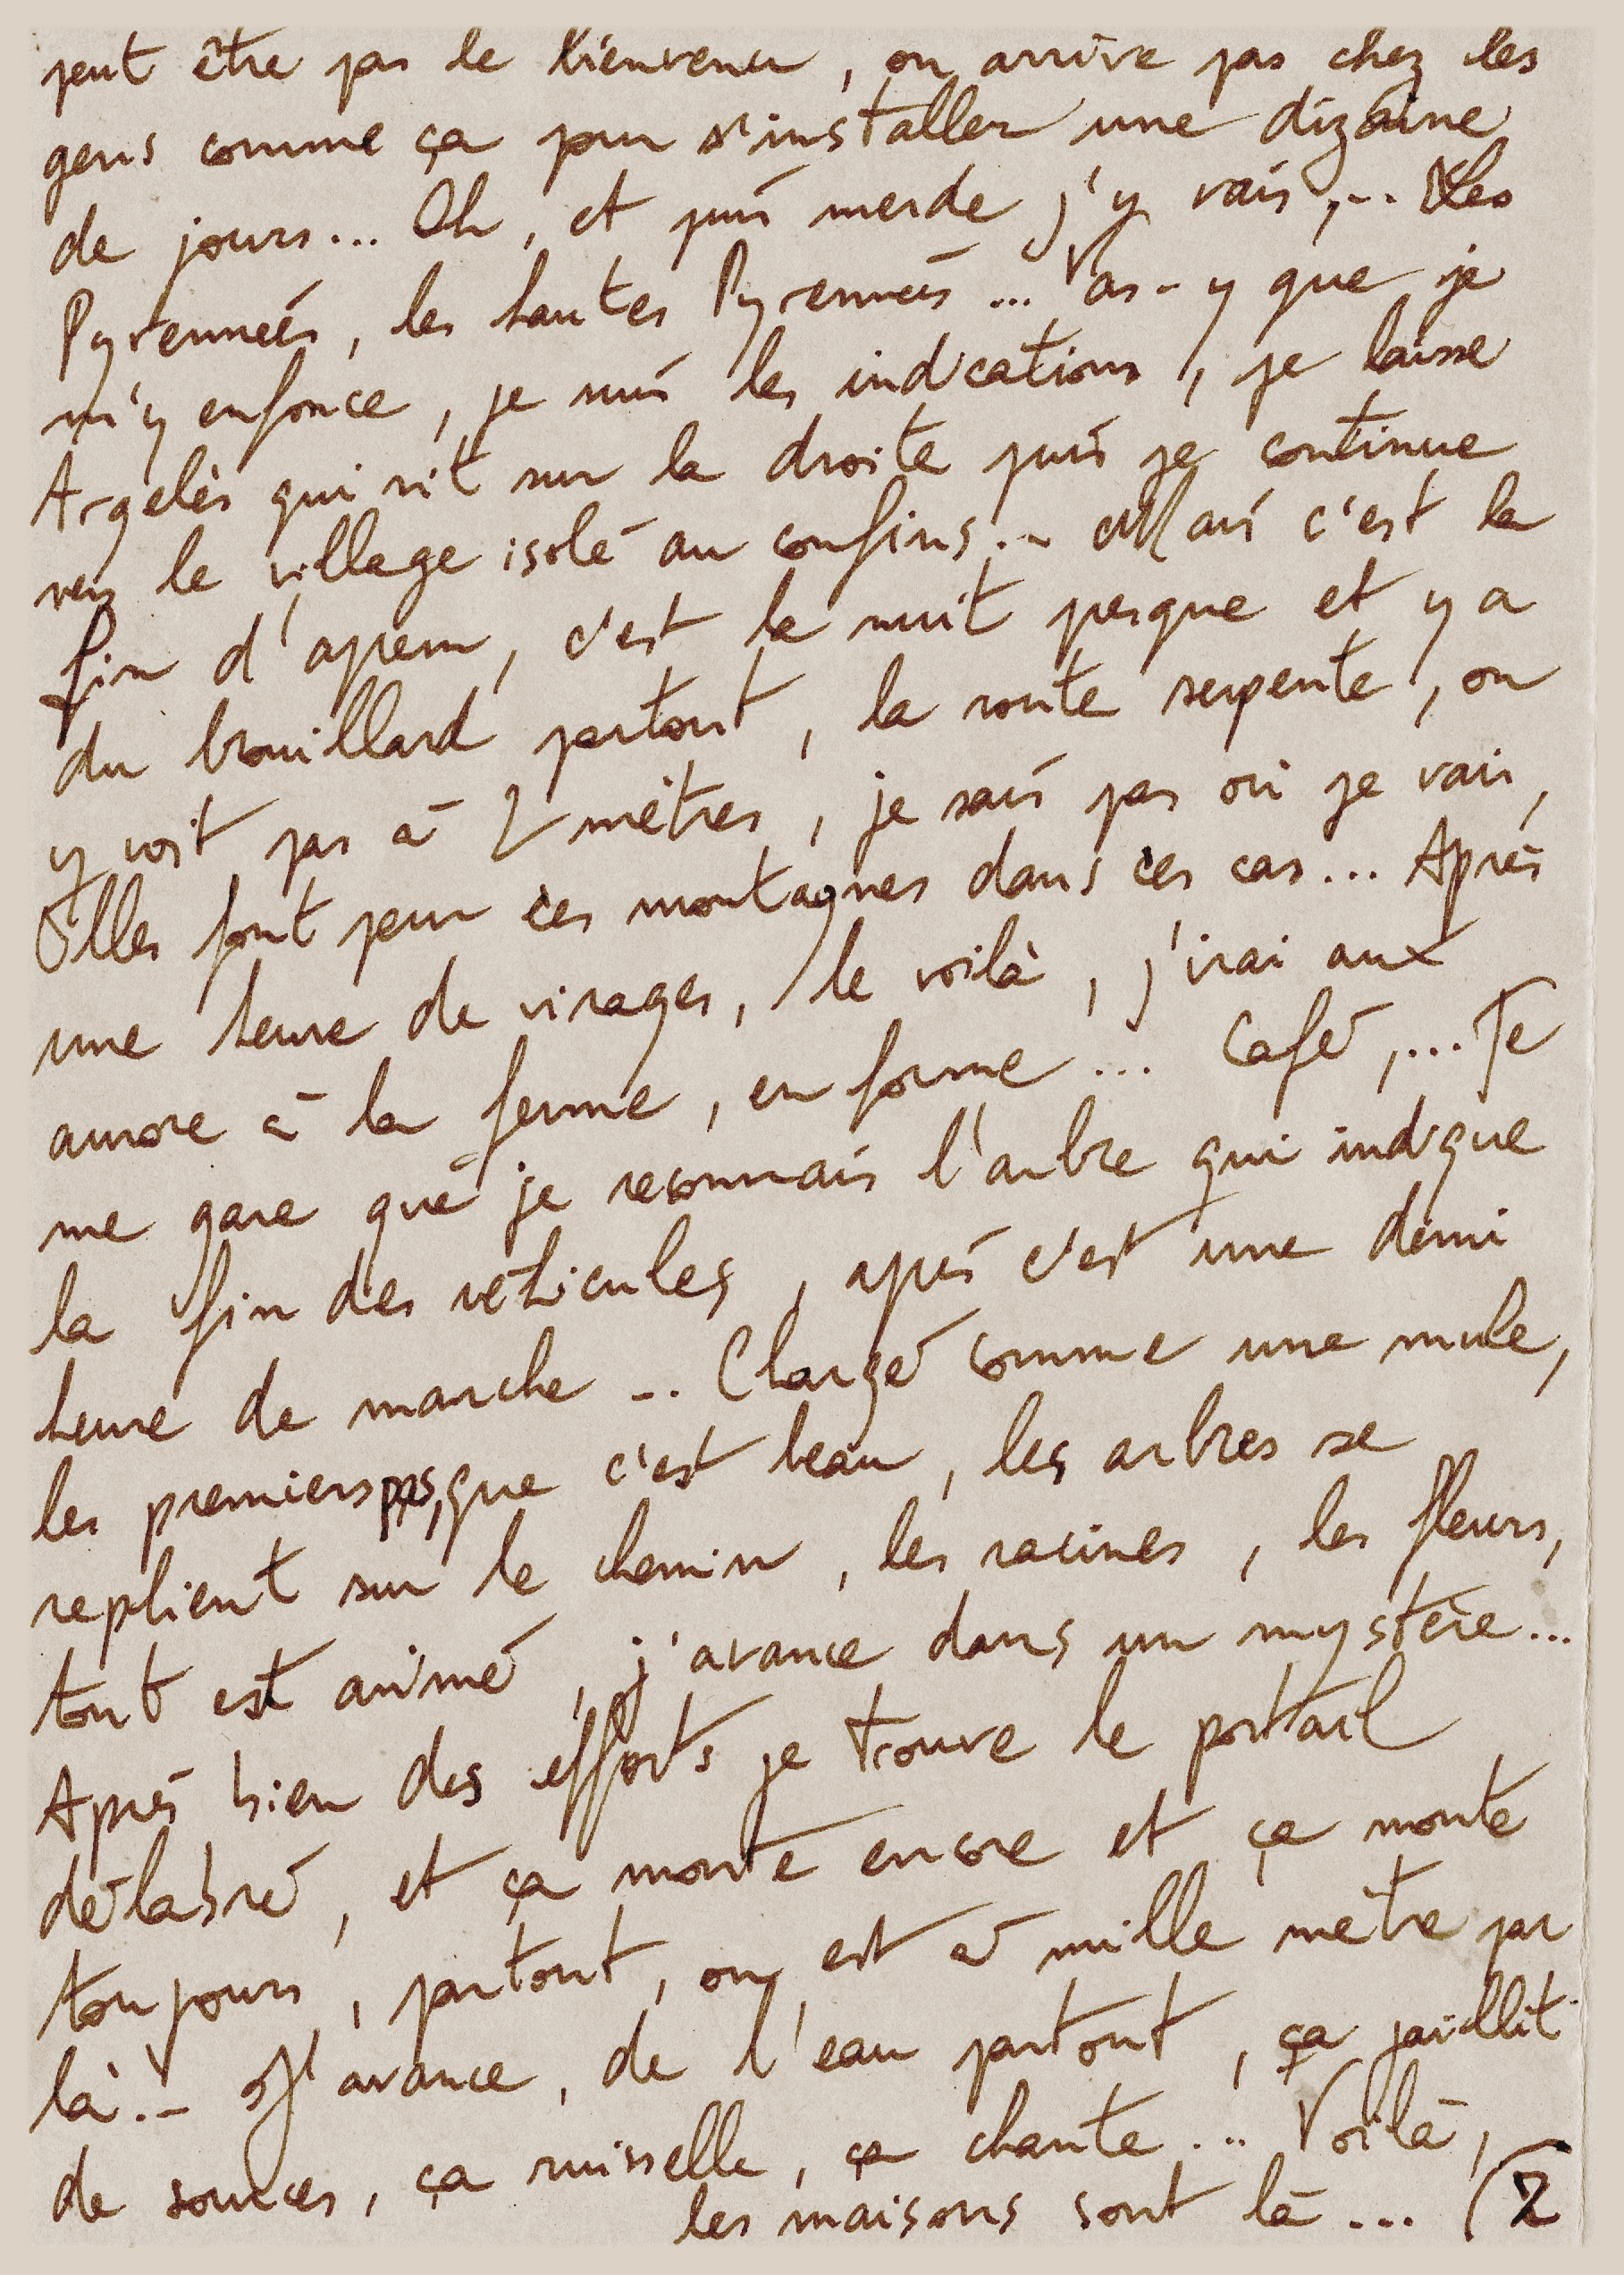 peut être pas le bienvenu, on arrive pas chez les
gens comme ça pour s'installer une dizaine
de jours... Oh, et puis merde j'y vais,... Les
Pyrennées, les hautes Pyrennées... Vas-y que je
m'y enfonce, je suis les indications, je laisse
Argelès qui rit sur la droite puis je continue
vers le village isolé au confins... Mais c'est la
fin d'aprem, c'est la nuit presque et y a
du brouillard partout, la route serpente, on
y voit pas à 2 mètres, je sais pas où je vais,
Elles font peur ces montagnes dans ces cas... Après
une heure de virages, le voilà, j'irai aux
aurore à la ferme, en forme... Café,... Je
me gare que je reconnais l'arbre qui indique
la fin des véhicules, après c'est une demi
heure de marche... Chargé comme une mule,
les premiers pas, que c'est beau, les arbres se
replient sur le chemin, les racines, les fleurs,
tout est animé, j'avance dans un mystère...
Après bien des efforts je trouve le portail
délabré, et ça monte encore et ça monte
toujours, partout, on est à mille mètre par
là... J'avance, de l'eau partout, ça jaillit
de sources, ça ruisselle, ça chante... Voilà,
les maisons sont là... (2